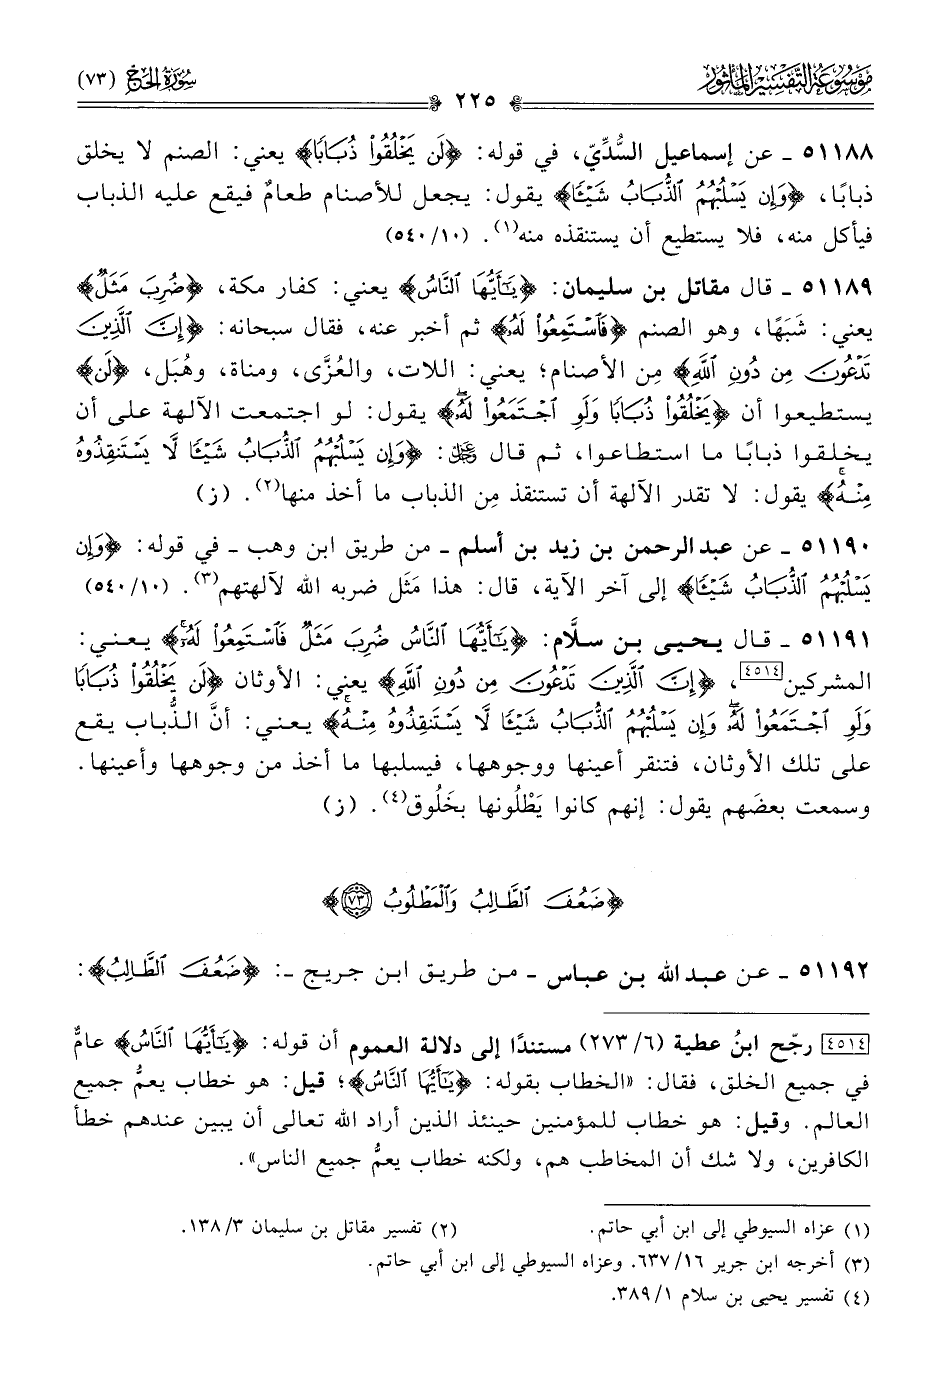 موسوعة التفسير المأثور
سورة الحج (٧٣)
٢٢٥
٥١١٨٨ ـ عن إسماعيل السُّدِّيّ، في قوله: ﴿لَن يَخْلُقُواْ ذُبَابًا﴾ يعني: الصنم لا يخلق
ذبابًا، ﴿وَإِن يَسْلُبْهُمُ ٱلذُّبَابُ شَيْـًٔا﴾ يقول: يجعل للأصنام طعامٌ فيقع عليه الذباب
فيأكل منه، فلا يستطيع أن يستنقذه منه(١). (١٠/ ٥٤٠)
٥١١٨٩ ـ قال مقاتل بن سليمان: ﴿يَـٰٓأَيُّهَا ٱلنَّاسُ﴾ يعني: كفار مكة، ﴿ضُرِبَ مَثَلٌ﴾
يعني: شَبَهًا، وهو الصنم ﴿فَٱسْتَمِعُواْ لَهُۥ﴾ ثم أخبر عنه، فقال سبحانه: ﴿إِنَّ ٱلَّذِينَ
تَدْعُونَ مِن دُونِ ٱللَّهِ﴾ مِن الأصنام؛ يعني: اللات، والعُزَّى، ومناة، وهُبَل، ﴿لَن﴾
يستطيعوا أن ﴿يَخْلُقُواْ ذُبَابًا وَلَوِ ٱجْتَمَعُواْ لَهُۥ﴾ يقول: لو اجتمعت الآلهة على أن
يخلقوا ذبابًا ما استطاعوا، ثم قال ﷿: ﴿وَإِن يَسْلُبْهُمُ ٱلذُّبَابُ شَيْـًٔا لَّا يَسْتَنقِذُوهُ
مِنْهُ﴾ يقول: لا تقدر الآلهة أن تستنقذ مِن الذباب ما أخذ منها(٢). (ز)
٥١١٩٠ ـ عن عبد الرحمن بن زيد بن أسلم ـ من طريق ابن وهب ـ في قوله: ﴿وَإِن
يَسْلُبْهُمُ ٱلذُّبَابُ شَيْـًٔا﴾ إلى آخر الآية، قال: هذا مَثَل ضربه الله لآلهتهم(٣). (١٠/ ٥٤٠)
٥١١٩١ ـ قال يحيى بن سلَّام: ﴿يَـٰٓأَيُّهَا ٱلنَّاسُ ضُرِبَ مَثَلٌ فَٱسْتَمِعُواْ لَهُۥٓ﴾ يعني:
المشركين[٤٥١٤]، ﴿إِنَّ ٱلَّذِينَ تَدْعُونَ مِن دُونِ ٱللَّهِ﴾ يعني: الأوثان ﴿لَن يَخْلُقُواْ ذُبَابًا
وَلَوِ ٱجْتَمَعُواْ لَهُۥ وَإِن يَسْلُبْهُمُ ٱلذُّبَابُ شَيْـًٔا لَّا يَسْتَنقِذُوهُ مِنْهُ﴾ يعني: أنَّ الذُّباب يقع
على تلك الأوثان، فتنقر أعينها ووجوهها، فيسلبها ما أخذ من وجوهها وأعينها.
وسمعت بعضَهم يقول: إنهم كانوا يَطْلُونها بخَلُوق(٤). (ز)
﴿ضَعُفَ ٱلطَّالِبُ وَٱلْمَطْلُوبُ ٧٣﴾
٥١١٩٢ ـ عن عبد الله بن عباس ـ من طريق ابن جريج ـ: ﴿ضَعُفَ ٱلطَّالِبُ﴾:
[٤٥١٤] رجّح ابنُ عطية (٦/ ٢٧٣) مستندًا إلى دلالة العموم أن قوله: ﴿يَـٰٓأَيُّهَا ٱلنَّاسُ﴾ عامٌّ
في جميع الخلق، فقال: «الخطاب بقوله: ﴿يَـٰٓأَيُّهَا ٱلنَّاسُ﴾؛ قيل: هو خطاب يعمُّ جميع
العالم. وقيل: هو خطاب للمؤمنين حينئذ الذين أراد الله تعالى أن يبين عندهم خطأ
الكافرين، ولا شك أن المخاطب هم، ولكنه خطاب يعمُّ جميع الناس».
(١) عزاه السيوطي إلى ابن أبي حاتم. (٢) تفسير مقاتل بن سليمان ٣/ ١٣٨.
(٣) أخرجه ابن جرير ١٦/ ٦٣٧. وعزاه السيوطي إلى ابن أبي حاتم.
(٤) تفسير يحيى بن سلام ١/ ٣٨٩.